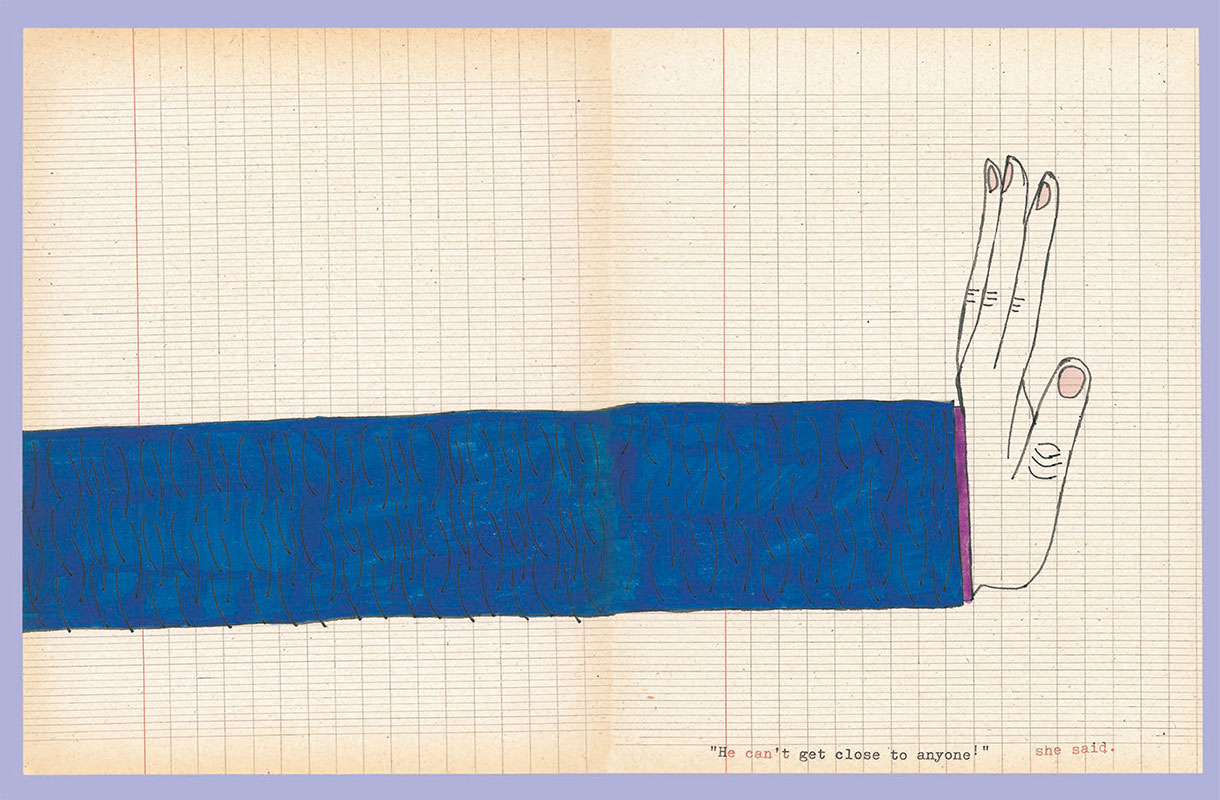 "He can't get close to anyone!" she said.